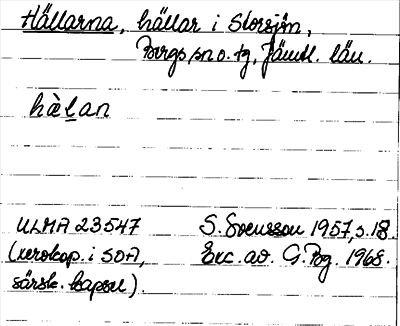 Hällarna, hällar i Storsjön,
Bergs sn o. tg, Jämtl. län.
hàḷan
ULMA 23547 S. Svensson 1957, s. 18.
(xerokop. i SOA, Exc. av. G. Pbg. 1968.
särsk. kapsel).